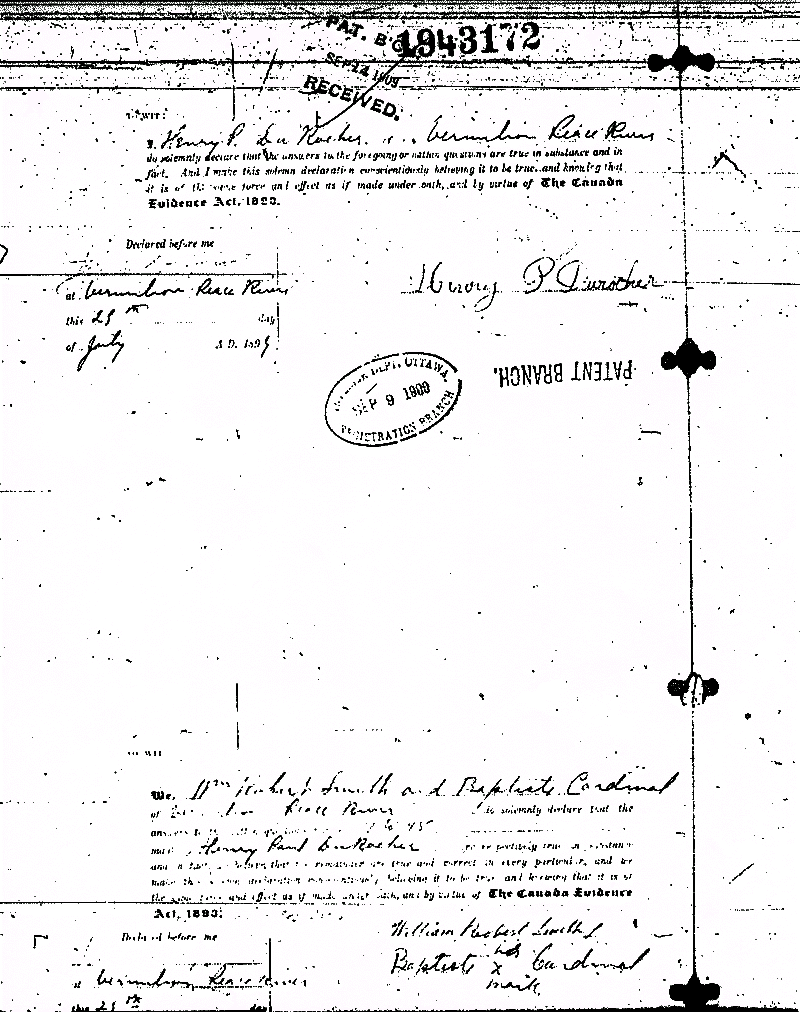 PAT. B
1943172
SEP 14 1909
RECEIVED.
TO WIT:
I, Henry P. Du Rocher, Vermilion Peace River
do solemnly declare that the answers to the foregoing or within questions are true in substance and in
fact. And I make this solemn declaration conscientiously believing it to be true, and knowing that
it is of the same force and effect as if made under oath, and by virtue of The Canada
Evidence Act, 1893.
Declared before me
at Vermilion Peace River
this 29th day
of July A.D. 1899
Henry P Durocher
DEPT. OTTAWA.
SEP 9 1909
REGISTRATION BRANCH
PATENT BRANCH.
TO WIT
We, Wm Robert Smith and Baptiste Cardinal
of Peace River do solemnly declare that the
answers to 45
Henry Paul DuRocher are respectively true in substance
and in fact, believe that the remainder are true and correct in every particular, and we
make this solemn declaration conscientiously believing it to be true and knowing that it is of
the same force and effect as if made under oath, and by virtue of The Canada Evidence
Act, 1893.
Declared before me
William Robert Smith
his
Baptiste x Cardinal
mark
at Vermilion Peace River
this 29th day